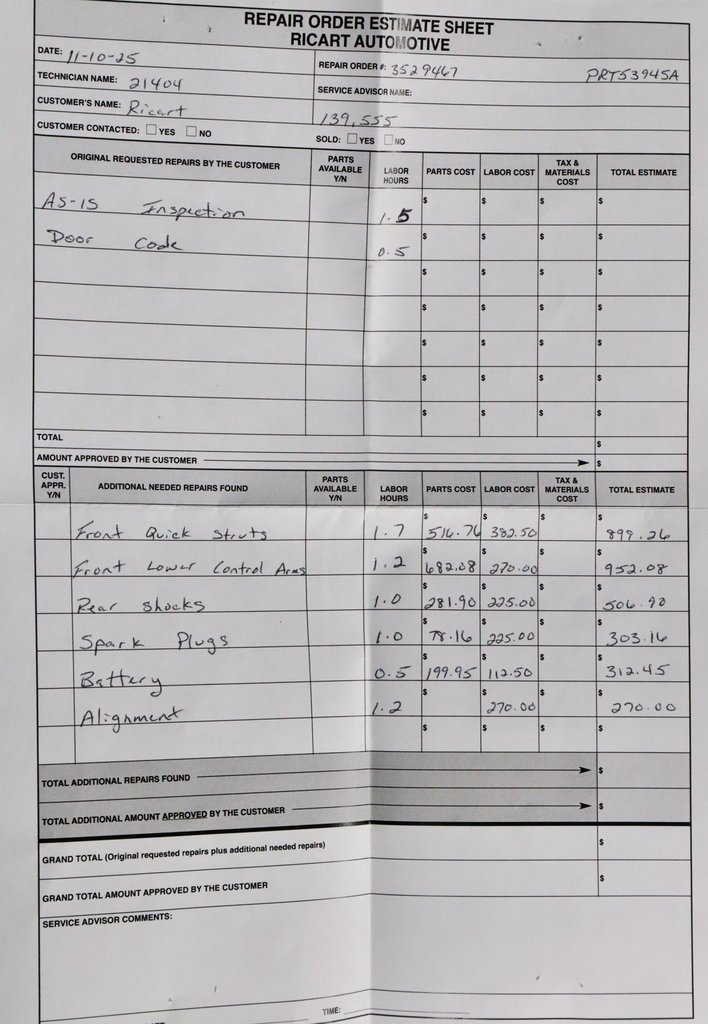 REPAIR ORDER ESTIMATE SHEET
RICART AUTOMOTIVE
DATE: 11-10-25
REPAIR ORDER #: 3529467 PRT53945A
TECHNICIAN NAME: 21404
SERVICE ADVISOR NAME:
CUSTOMER'S NAME: Ricart
139,555
CUSTOMER CONTACTED: YES NO
SOLD: YES NO
ORIGINAL REQUESTED REPAIRS BY THE CUSTOMER PARTS AVAILABLE Y/N LABOR HOURS PARTS COST LABOR COST TAX & MATERIALS COST TOTAL ESTIMATE
AS-IS Inspection 1.5 $ $ $ $
Door Code 0.5 $ $ $ $
$ $ $ $
$ $ $ $
$ $ $ $
$ $ $ $
$ $ $ $
TOTAL $
AMOUNT APPROVED BY THE CUSTOMER $
CUST. APPR. Y/N ADDITIONAL NEEDED REPAIRS FOUND PARTS AVAILABLE Y/N LABOR HOURS PARTS COST LABOR COST TAX & MATERIALS COST TOTAL ESTIMATE
Front Quick Struts 1.7 $ 516.76 $ 382.50 $ $ 899.26
Front Lower Control Arms 1.2 $ 682.08 $ 270.00 $ $ 952.08
Rear Shocks 1.0 $ 281.90 $ 225.00 $ $ 506.90
Spark Plugs 1.0 $ 78.16 $ 225.00 $ $ 303.16
Battery 0.5 $ 199.95 $ 112.50 $ $ 312.45
Alignment 1.2 $ $ 270.00 $ $ 270.00
$ $ $ $
TOTAL ADDITIONAL REPAIRS FOUND $
TOTAL ADDITIONAL AMOUNT APPROVED BY THE CUSTOMER $
GRAND TOTAL (Original requested repairs plus additional needed repairs) $
GRAND TOTAL AMOUNT APPROVED BY THE CUSTOMER $
SERVICE ADVISOR COMMENTS:
TIME: